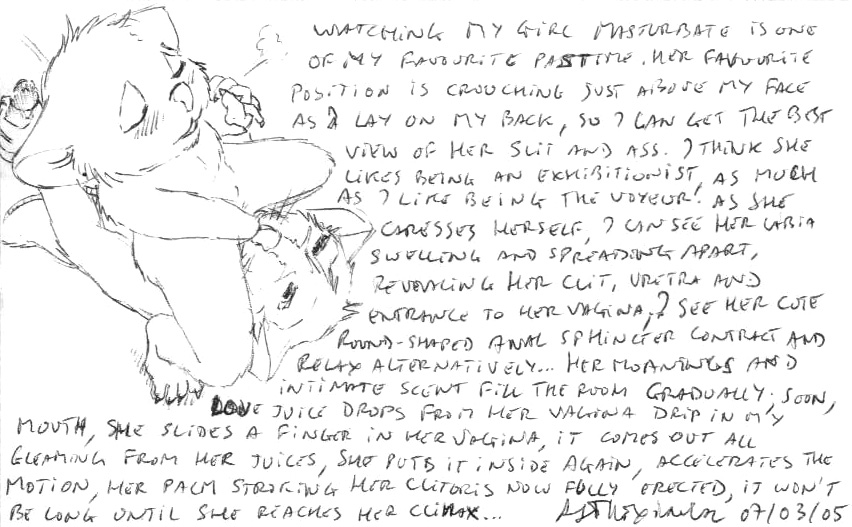 WATCHING MY GIRL MASTURBATE IS ONE
OF MY FAVOURITE PASTIME. HER FAVOURITE
POSITION IS CROUCHING JUST ABOVE MY FACE
AS I LAY ON MY BACK, SO I CAN GET THE BEST
VIEW OF HER SLIT AND ASS. I THINK SHE
LIKES BEING AN EXHIBITIONIST, AS MUCH
AS I LIKE BEING THE VOYEUR! AS SHE
CARESSES HERSELF, I CAN SEE HER LABIA
SWELLING AND SPREADING APART,
REVEALING HER CLIT, URETRA AND
ENTRANCE TO HER VAGINA, I SEE HER CUTE
ROUND-SHAPED ANAL SPHINCTER CONTRACT AND
RELAX ALTERNATIVELY... HER MOANINGS AND
INTIMATE SCENT FILL THE ROOM GRADUALLY; SOON,
LOVE JUICE DROPS FROM HER VAGINA DRIP IN MY
MOUTH, SHE SLIDES A FINGER IN HER VAGINA, IT COMES OUT ALL
GLEAMING FROM HER JUICES, SHE PUTS IT INSIDE AGAIN, ACCELERATES THE
MOTION, HER PALM STROKING HER CLITORIS NOW FULLY ERECTED, IT WON'T
BE LONG UNTIL SHE REACHES HER CLIMAX... 07/03/05